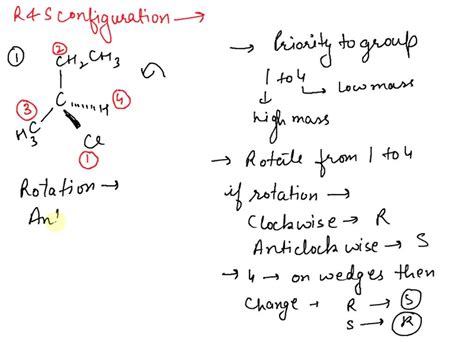 R & S configuration →
①
②
CH₂CH₃
③
C
H
④
H₃C
Cl
①
Rotation →
An
→ Priority to group
1 to 4
↓
↳ Low mass
high mass
→ Rotate from 1 to 4
if rotation →
Clockwise → R
Anticlockwise → S
→ 4 → on wedges then
Change → R → Ⓢ
S → Ⓡ